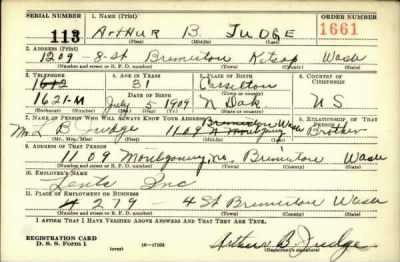 SERIAL NUMBER 1. NAME (Print) ORDER NUMBER
113 ARTHUR B. JUDGE 1661
(First) (Middle) (Last)
2. ADDRESS (Print)
1209 - 8-St Bremerton Kitsap Wash
(Number and street or R. F. D. number) (Town) (County) (State)
3. TELEPHONE 4. AGE IN YEARS 5. PLACE OF BIRTH 6. COUNTRY OF CITIZENSHIP
31
DATE OF BIRTH (Town or county)
1621-M July 5 1909 N Dak. U S
(Exchange) (Number) (Mo.) (Day) (Yr.) (State or country)
7. NAME OF PERSON WHO WILL ALWAYS KNOW YOUR ADDRESS 8. RELATIONSHIP OF THAT PERSON
Bremerton Wash
Mr L B Judge 1109 Brother
(Mr., Mrs., Miss) (First) (Middle) (Last)
9. ADDRESS OF THAT PERSON
1109 Montgomery Bremerton Wash
(Number and street or R. F. D. number) (Town) (County) (State)
10. EMPLOYER'S NAME
Lents Inc
11. PLACE OF EMPLOYMENT OR BUSINESS
279 - 4 St Bremerton Wash
(Number and street or R. F. D. number) (Town) (County) (State)
I AFFIRM THAT I HAVE VERIFIED ABOVE ANSWERS AND THAT THEY ARE TRUE.
REGISTRATION CARD
D. S. S. Form 1 (over) Arthur B. Judge
(Registrant's signature)